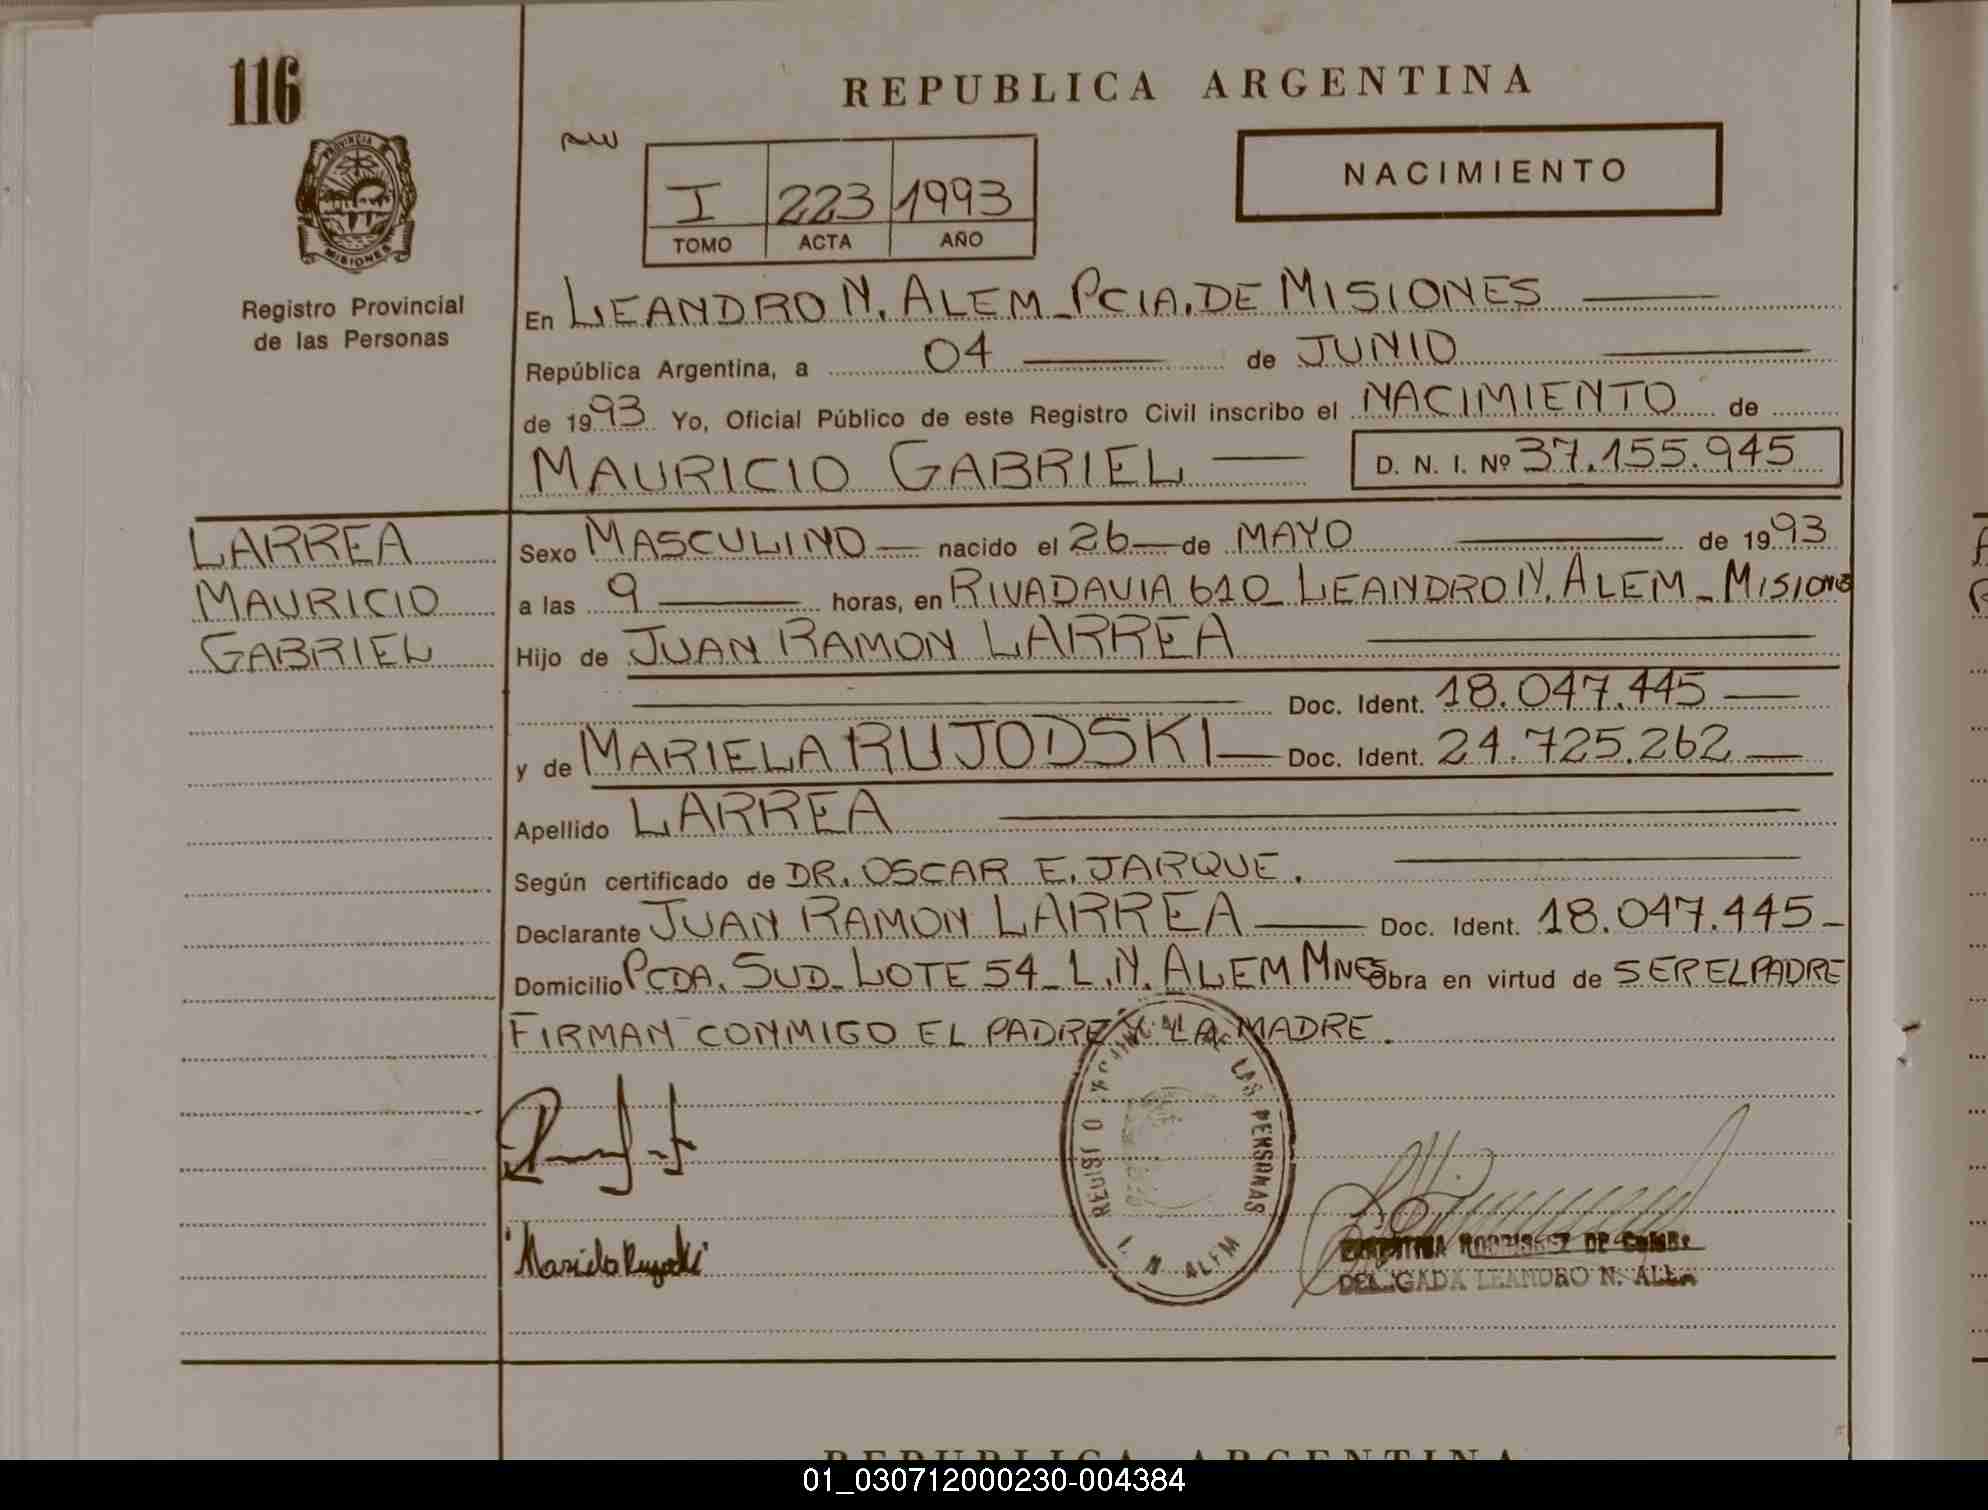 116
REPUBLICA ARGENTINA
PROVINCIA DE
MISIONES
I 223 1993
TOMO ACTA AÑO
NACIMIENTO
Registro Provincial
de las Personas
En LEANDRO N. ALEM_PCIA.DE MISIONES
República Argentina, a 04 de JUNIO
de 1993 Yo, Oficial Público de este Registro Civil inscribo el NACIMIENTO de
MAURICIO GABRIEL D. N. I. Nº 37.155.945
LARREA
MAURICIO
GABRIEL
Sexo MASCULINO nacido el 26 de MAYO de 1993
a las 9 horas, en RIVADAVIA 610_ LEANDRO N. ALEM_MISIONES
Hijo de JUAN RAMON LARREA
Doc. Ident. 18.047.445
y de MARIELA RUJODSKI Doc. Ident. 24.725.262
Apellido LARREA
Según certificado de DR. OSCAR E. JARQUE.
Declarante JUAN RAMON LARREA Doc. Ident. 18.047.445
Domicilio PCDA. SUD_ LOTE 54_L.N. ALEM MNES Obra en virtud de SER EL PADRE
FIRMAN CONMIGO EL PADRE Y LA MADRE.
REGISTRO PROVINCIAL DE LAS PERSONAS
L. N. ALEM
Mariela
RODRIGUEZ DE
DELEGADA LEANDRO N. ALEM
REPUBLICA ARGENTINA
01_030712000230-004384